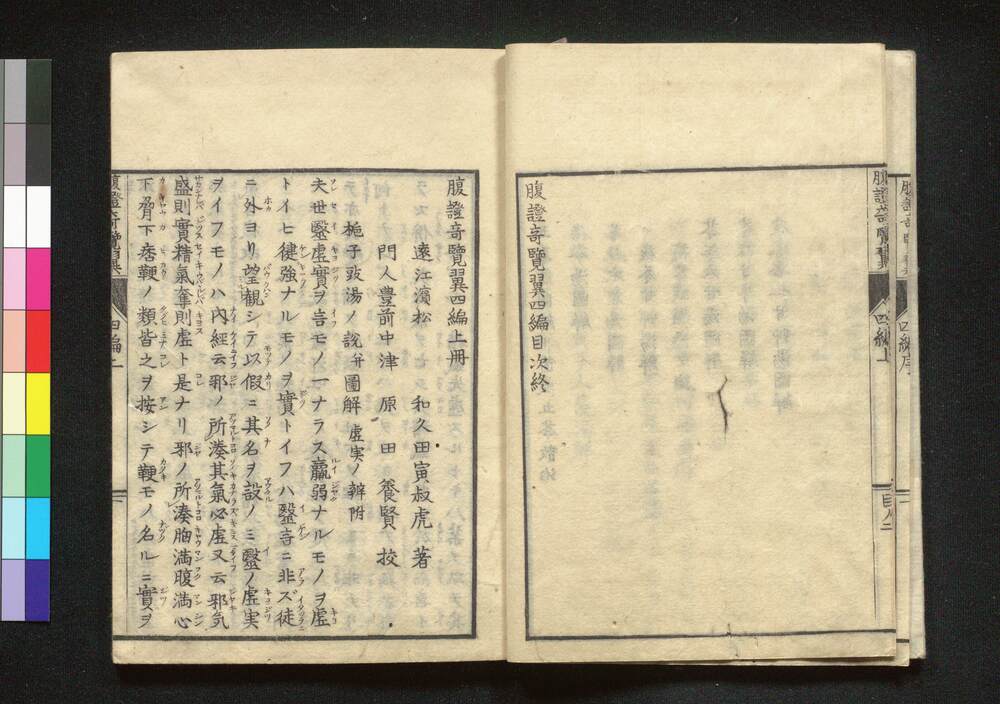 腹證奇覽翼 四編序
腹證奇覽翼 四編上 目次二
腹證奇覽翼四編目次終
腹證奇覽翼四編上冊
遠江濱松 和久田寅叔虎著
門人豊前中津 原田養賢挍
梔子豉湯ノ說并圖解 虛実ノ辨附
夫世毉虛實ヲ言モノ一ナラス羸弱ナルモノヲ虛
トイヒ健強ナルモノヲ實トイフハ毉言ニ非ズ徒
ニ外ヨリ望觀シテ以假ニ其名ヲ設ノミ毉ノ虛実
ヲイフモノハ內經云邪ノ所湊其氣必虛又云邪気
盛則實精氣奪則虛ト是ナリ邪ノ所湊胸満腹満心
下脅下痞鞕ノ類皆之ヲ按シテ鞕モノ名ルニ實ヲ
腹證奇覽翼 四編上